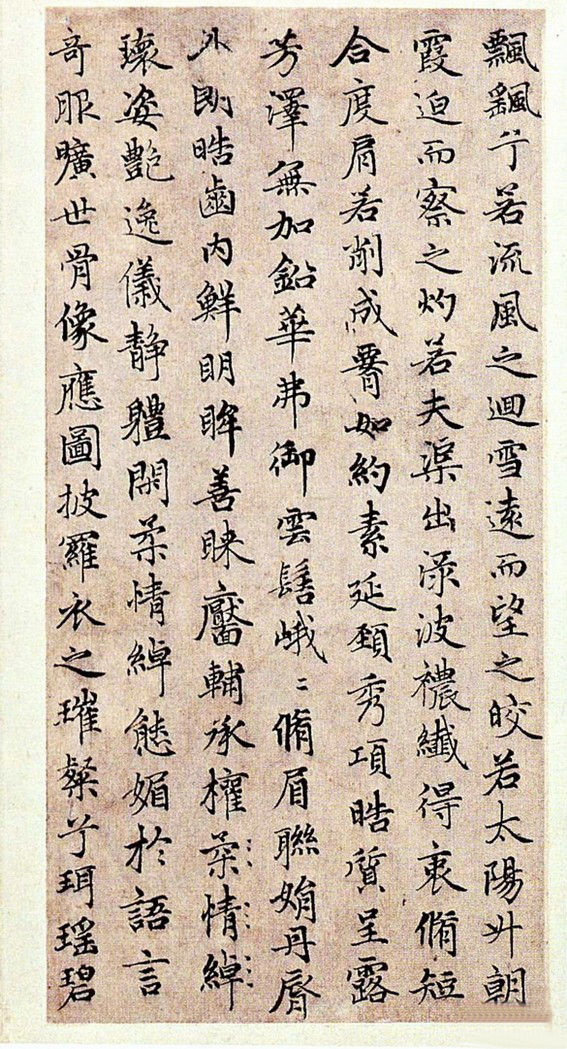 飄颻兮若流風之迴雪遠而望之晈若太陽升朝
霞迫而察之灼若夫渠出渌波襛纖得衷脩短
合度肩若削成𦝫如約素延頸秀項晧質呈露
芳澤無加鉛華弗御雲髻峨〻脩眉聯娟丹脣
外朗晧齒內鮮眀眸善睞靨輔承權柔情綽
瓌姿艶逸儀靜體閑柔情綽態媚於語言
奇服曠世骨像應圖披羅衣之璀粲兮珥瑤碧